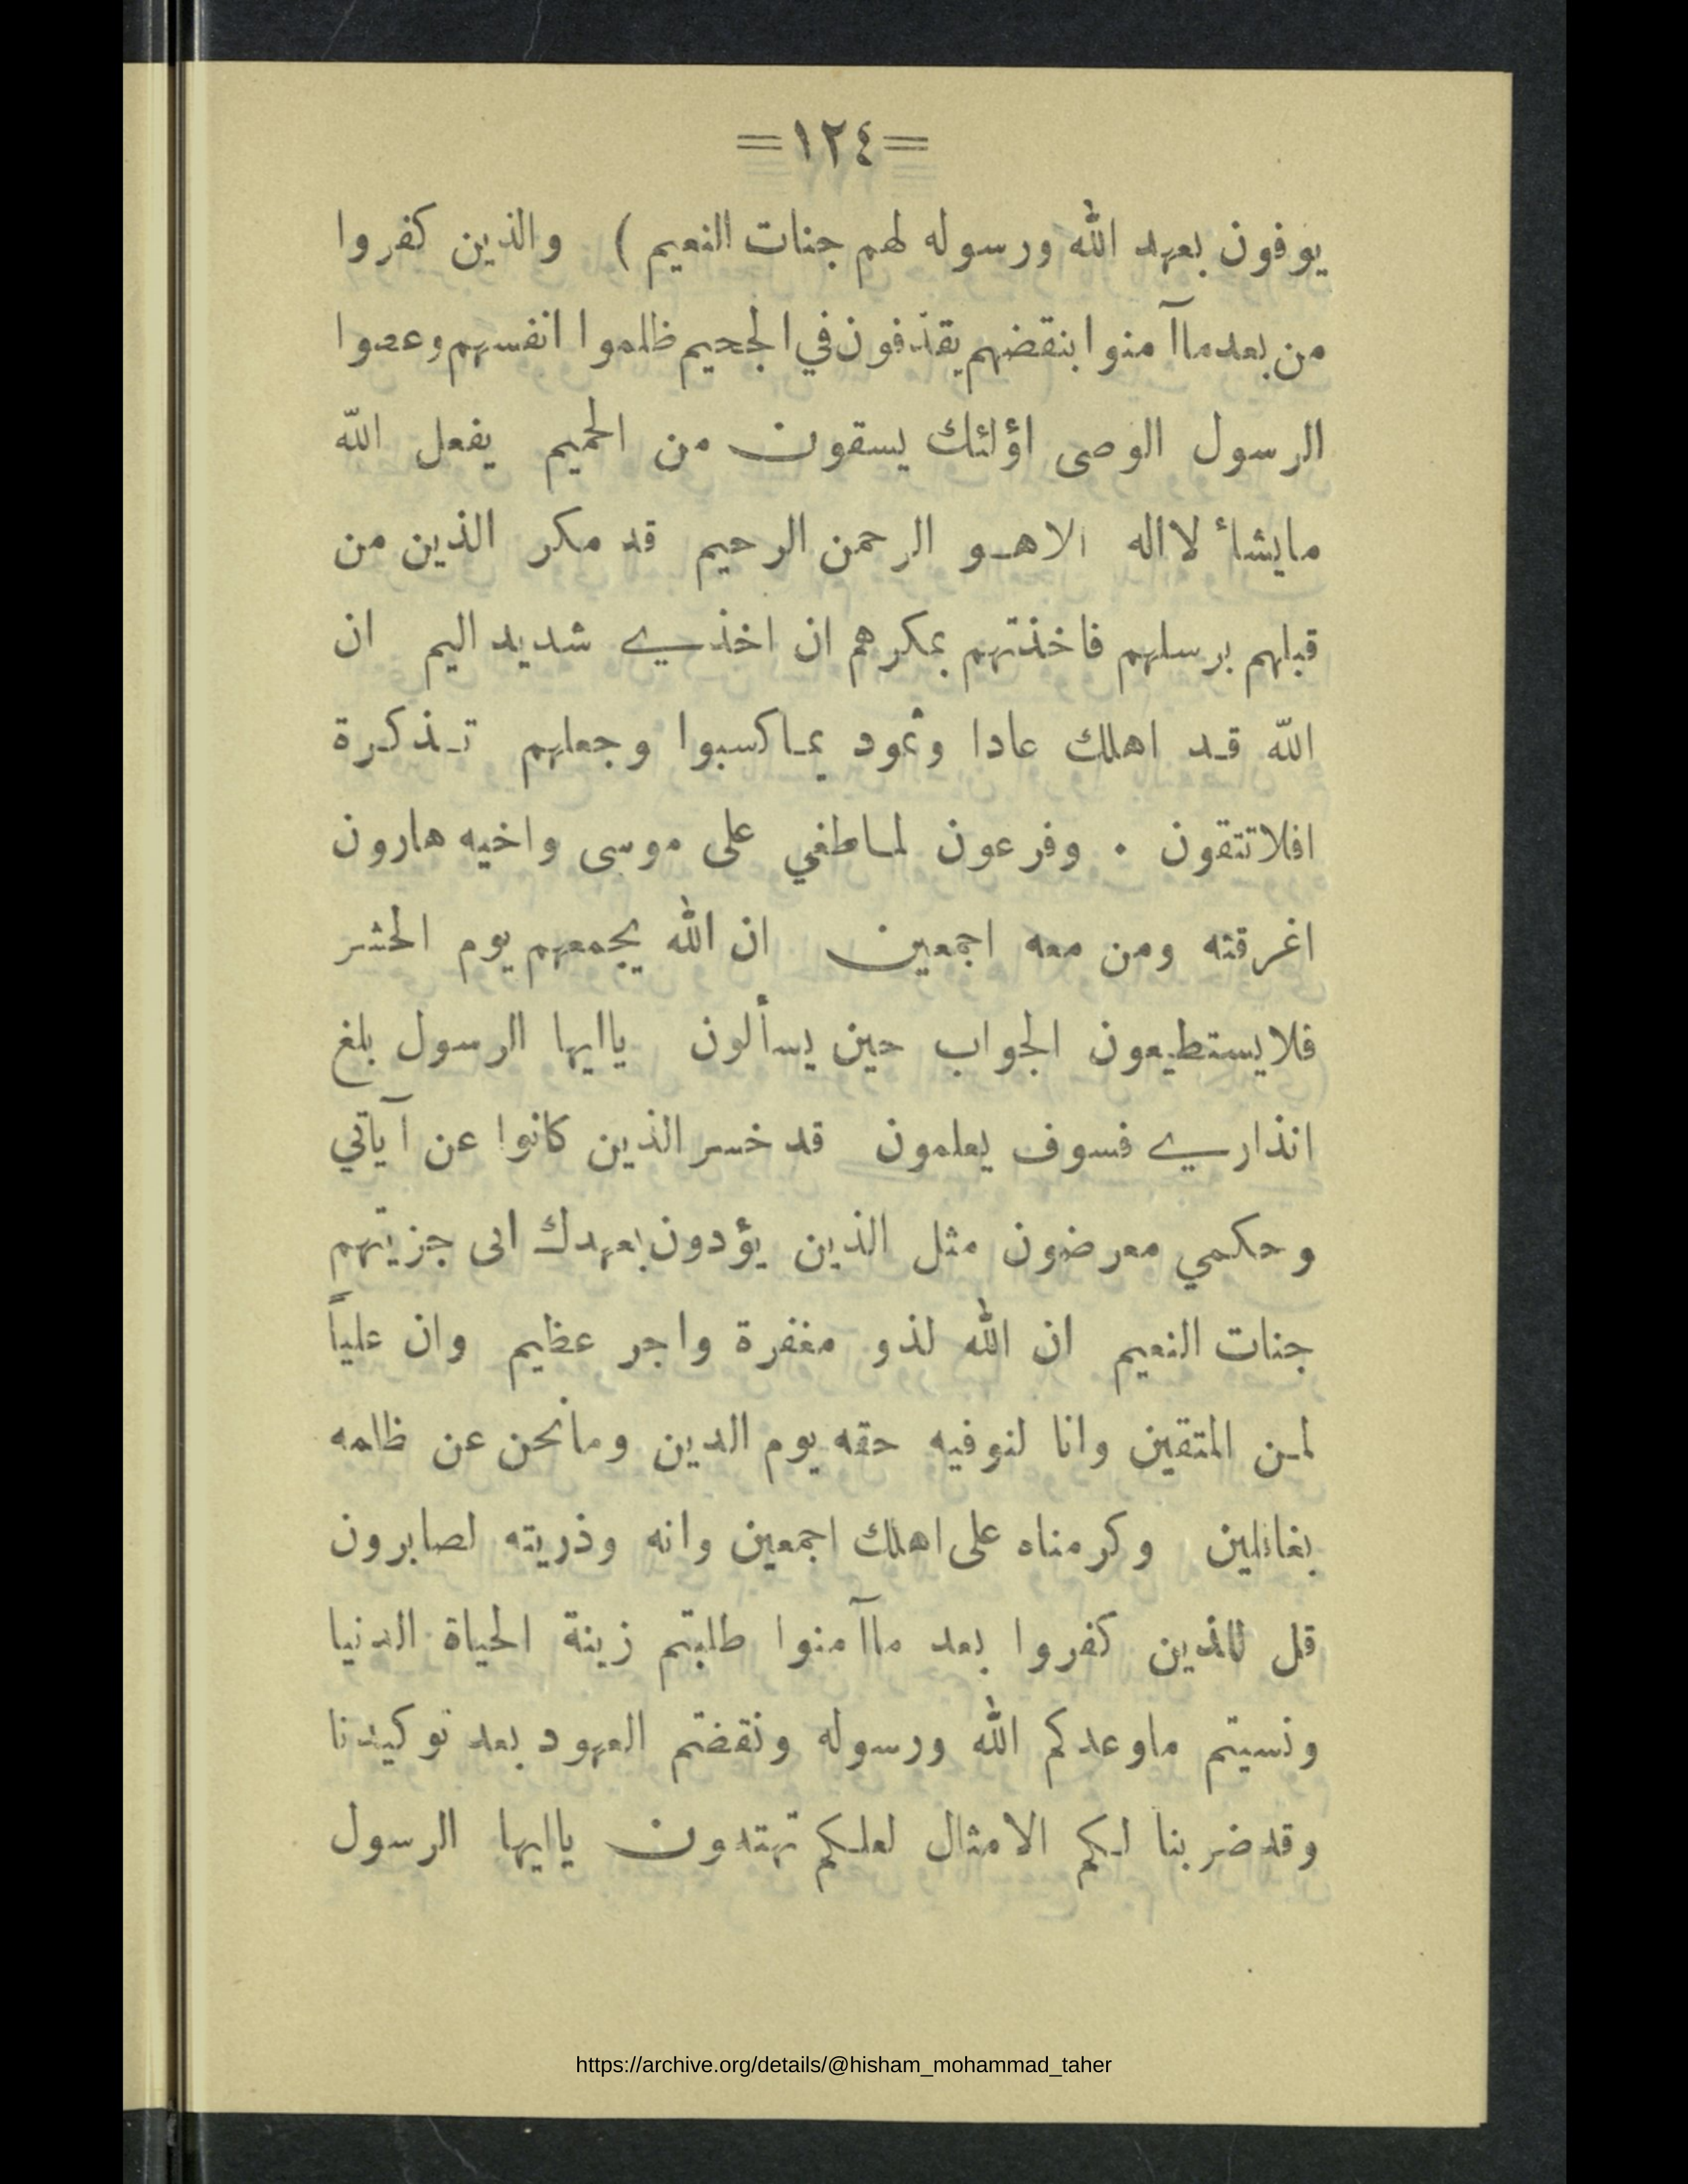 =١٢٤=
يوفون بعهد الله ورسوله لهم جنات النعيم ) والذين كفروا
من بعدماآ منوا بنقضهم يقذفون في الجحيم ظلموا انفسهم وعصوا
الرسول الوصى اؤلئك يسقون من الحميم يفعل الله
مايشاء لااله الاهو الرحمن الرحيم قد مكر الذين من
قبلهم برسلهم فاخذتهم بمكرهم ان اخذي شديد اليم ان
الله قد اهلك عادا وثمود بما كسبوا وجعلهم تذكرة
افلاتتقون . وفرعون لما طغي على موسى واخيه هارون
اغرقته ومن معه اجمعين ان الله يجمعهم يوم الحشر
فلايستطيعون الجواب حين يسألون ياايها الرسول بلغ
انذاري فسوف يعلمون قد خسر الذين كانوا عن آياتي
وحكمي معرضون مثل الذين يؤدون بعهدك انى جزيتهم
جنات النعيم ان الله لذو مغفرة واجر عظيم وان علياً
لمن المتقين وانا لنوفيه حقه يوم الدين ومانحن عن ظلمه
بغافلين وكرمناه على اهلك اجمعين وانه وذريته لصابرون
قل للذين كفروا بعد ماآمنوا طلبتم زينة الحياة الدنيا
ونسيتم ماوعدكم الله ورسوله ونقضتم العهود بعد توكيدنا
وقد ضربنا لكم الامثال لعلكم تهتدون ياايها الرسول
https://archive.org/details/@hisham_mohammad_taher